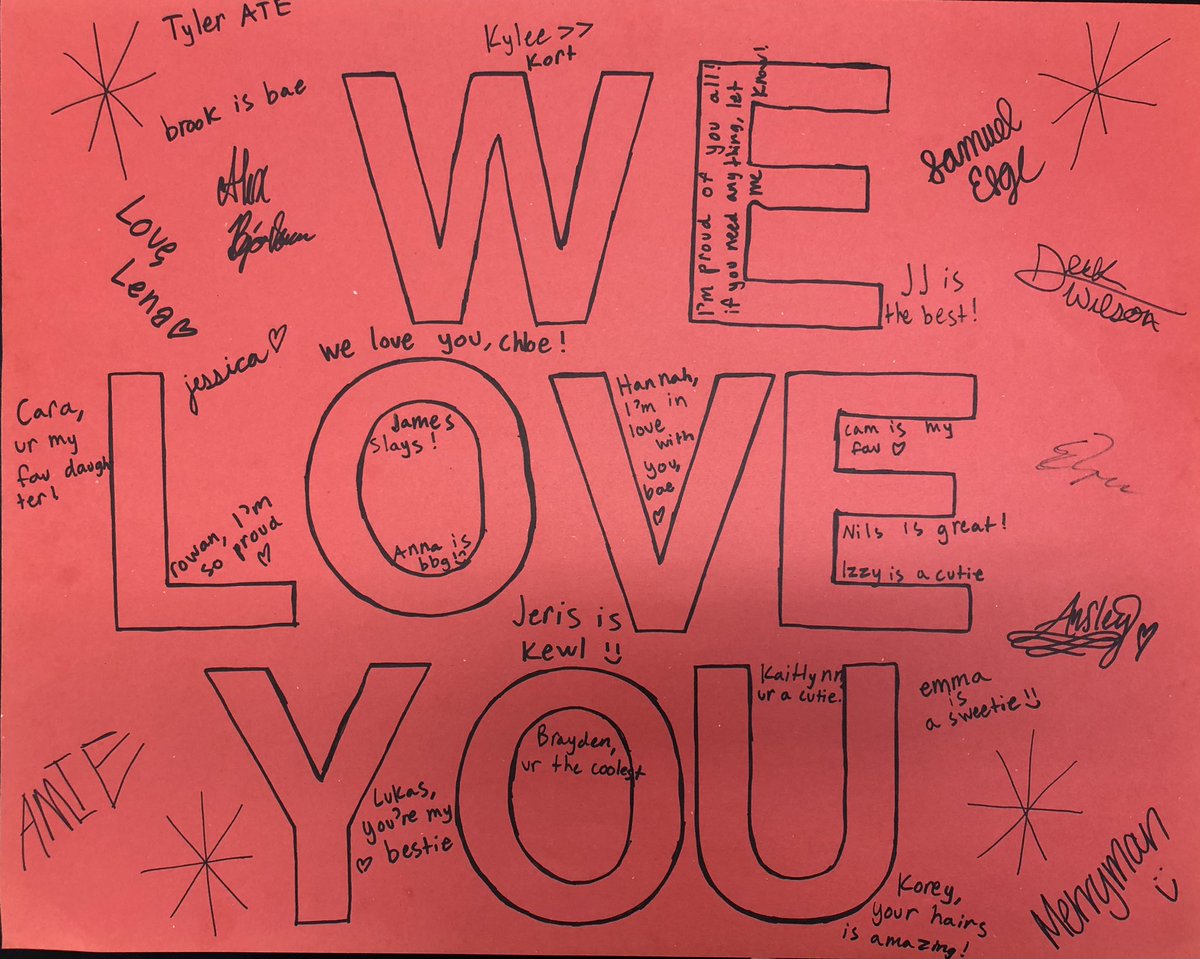 Tyler ATE
Kylee >>
Kort
brook is bae
Alex
Love,
Lena ♡
WE
I'm proud of you all!
if you need anything, let
me know!
Samuel
Elge
JJ is
the best!
Derk
Wilson
jessica ♡
we love you, Chloe!
Cara,
ur my
fav daugh
ter!
LOVE
James
slays!
Anna is
bbg :)
rowan, I'm
so proud
♡
Hannah,
I'm in
love
with
you,
bae
♡
cam is my
fav ♡
Nils is great!
Izzy is a cutie
Jeris is
Kewl :)
Ansley ♡
YOU
Kaitlynn,
ur a cutie.
emma
is
a sweetie :)
Brayden,
ur the coolest
Lukas,
you're my
♡ bestie
AMIE
Korey,
your hairs
is amazing!
Merryman
:)